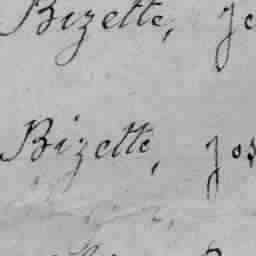 Bizette, Jo
Bizette, Jos